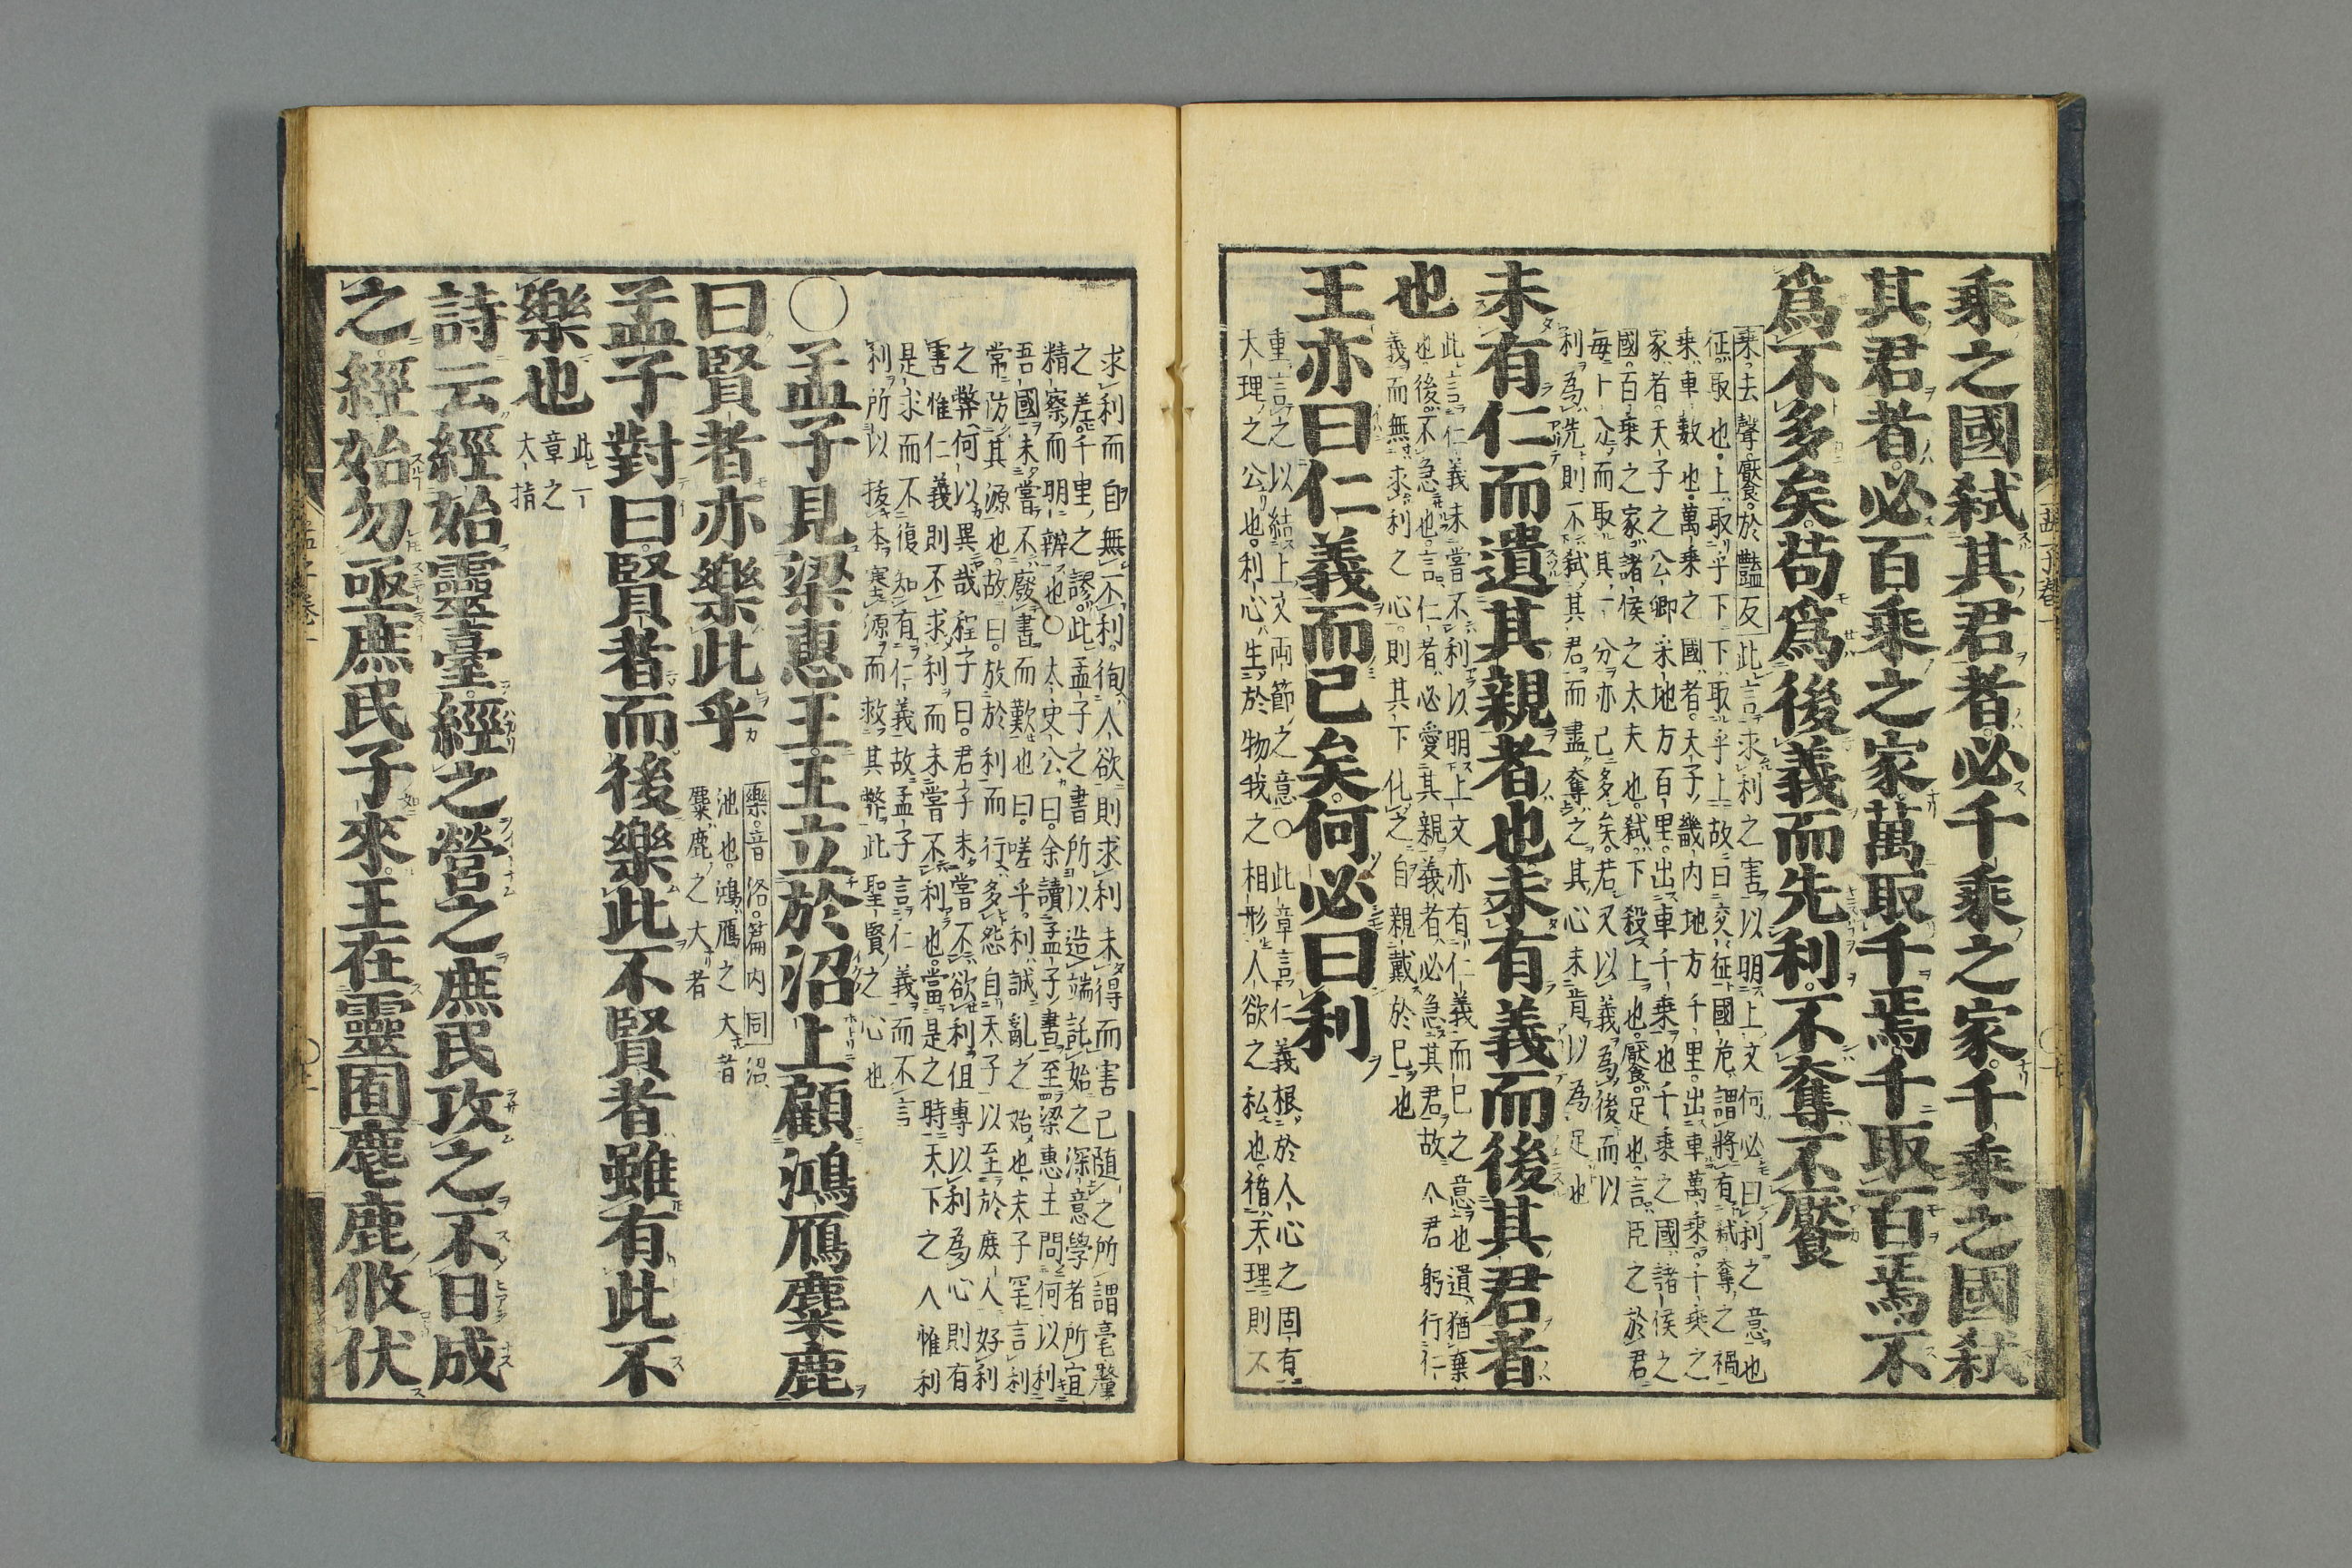 乘之國弑其君者必千乘之家千乘之國弑
其君者必百乘之家萬取千焉千取百焉不
爲不多矣苟爲後義而先利不奪不饜
乘去聲饜於豔反此言求利之害以明上文何必曰利之意也
征取也上取乎下下取乎上故曰交征國危謂將有弑奪之禍
乘車數也萬乘之國者天子畿内地方千里出車萬乘千乘之
家者天子之公卿采地方百里出車千乘也千乘之國諸侯之
國百乘之家諸侯之大夫也弑下殺上也饜足也言臣之於君
每十分而取其一分亦已多矣若又以義爲後而以
利為先則不弑其君而盡奪之其心未肯以為足也
未有仁而遺其親者也未有義而後其君者
也
此言仁義未嘗不利以明上文亦有仁義而已之意也遺猶棄
也後不急也言仁者必愛其親義者必急其君故人君躬行仁
義而無求利之心則其下化之自親戴於己也
王亦曰仁義而已矣何必曰利
重言之以結上文兩節之意○此章言仁義根於人心之固有
天理之公也利心生於物我之相形人欲之私也循天理則不
求利而自無不利徇人欲則求利未得而害已随之所謂毫釐
之差千里之謬此孟子之書所以造端託始之深意學者所宜
精察而明辨也○太史公曰余讀孟子書至梁惠王問何以利
吾國未嘗不廢書而歎也曰嗟乎利誠亂之始也夫子罕言利
常防其源也故曰放於利而行多怨自天子以至於庶人好利
之弊何以異哉程子曰君子未嘗不欲利但專以利為心則有
害惟仁義則不求利而未嘗不利也當是之時天下之人惟利
是求而不復知有仁義故孟子言仁義而不言
利所以拔本塞源而救其弊此聖賢之心也
○孟子見梁惠王王立於沼上顧鴻鴈麋鹿
曰賢者亦樂此乎
樂音洛篇内同沼
池也鴻鴈之大者
麋鹿之大者
孟子對曰賢者而後樂此不賢者雖有此不
樂也
此一
章之
大指
詩云經始靈臺經之營之庶民攻之不日成
之經始勿亟庶民子來王在靈囿麀鹿攸伏